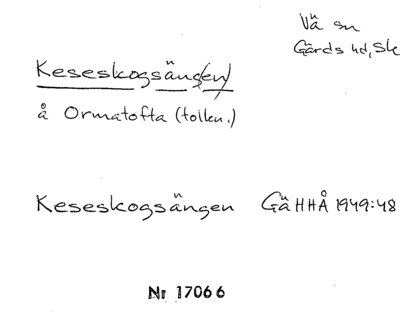 Vä sn
Gärds hd, Sk
Keseskogsäng(en)
å Ormatofta (tolkn.)
Keseskogsängen GäHHÅ 1949:48
Nr 17066